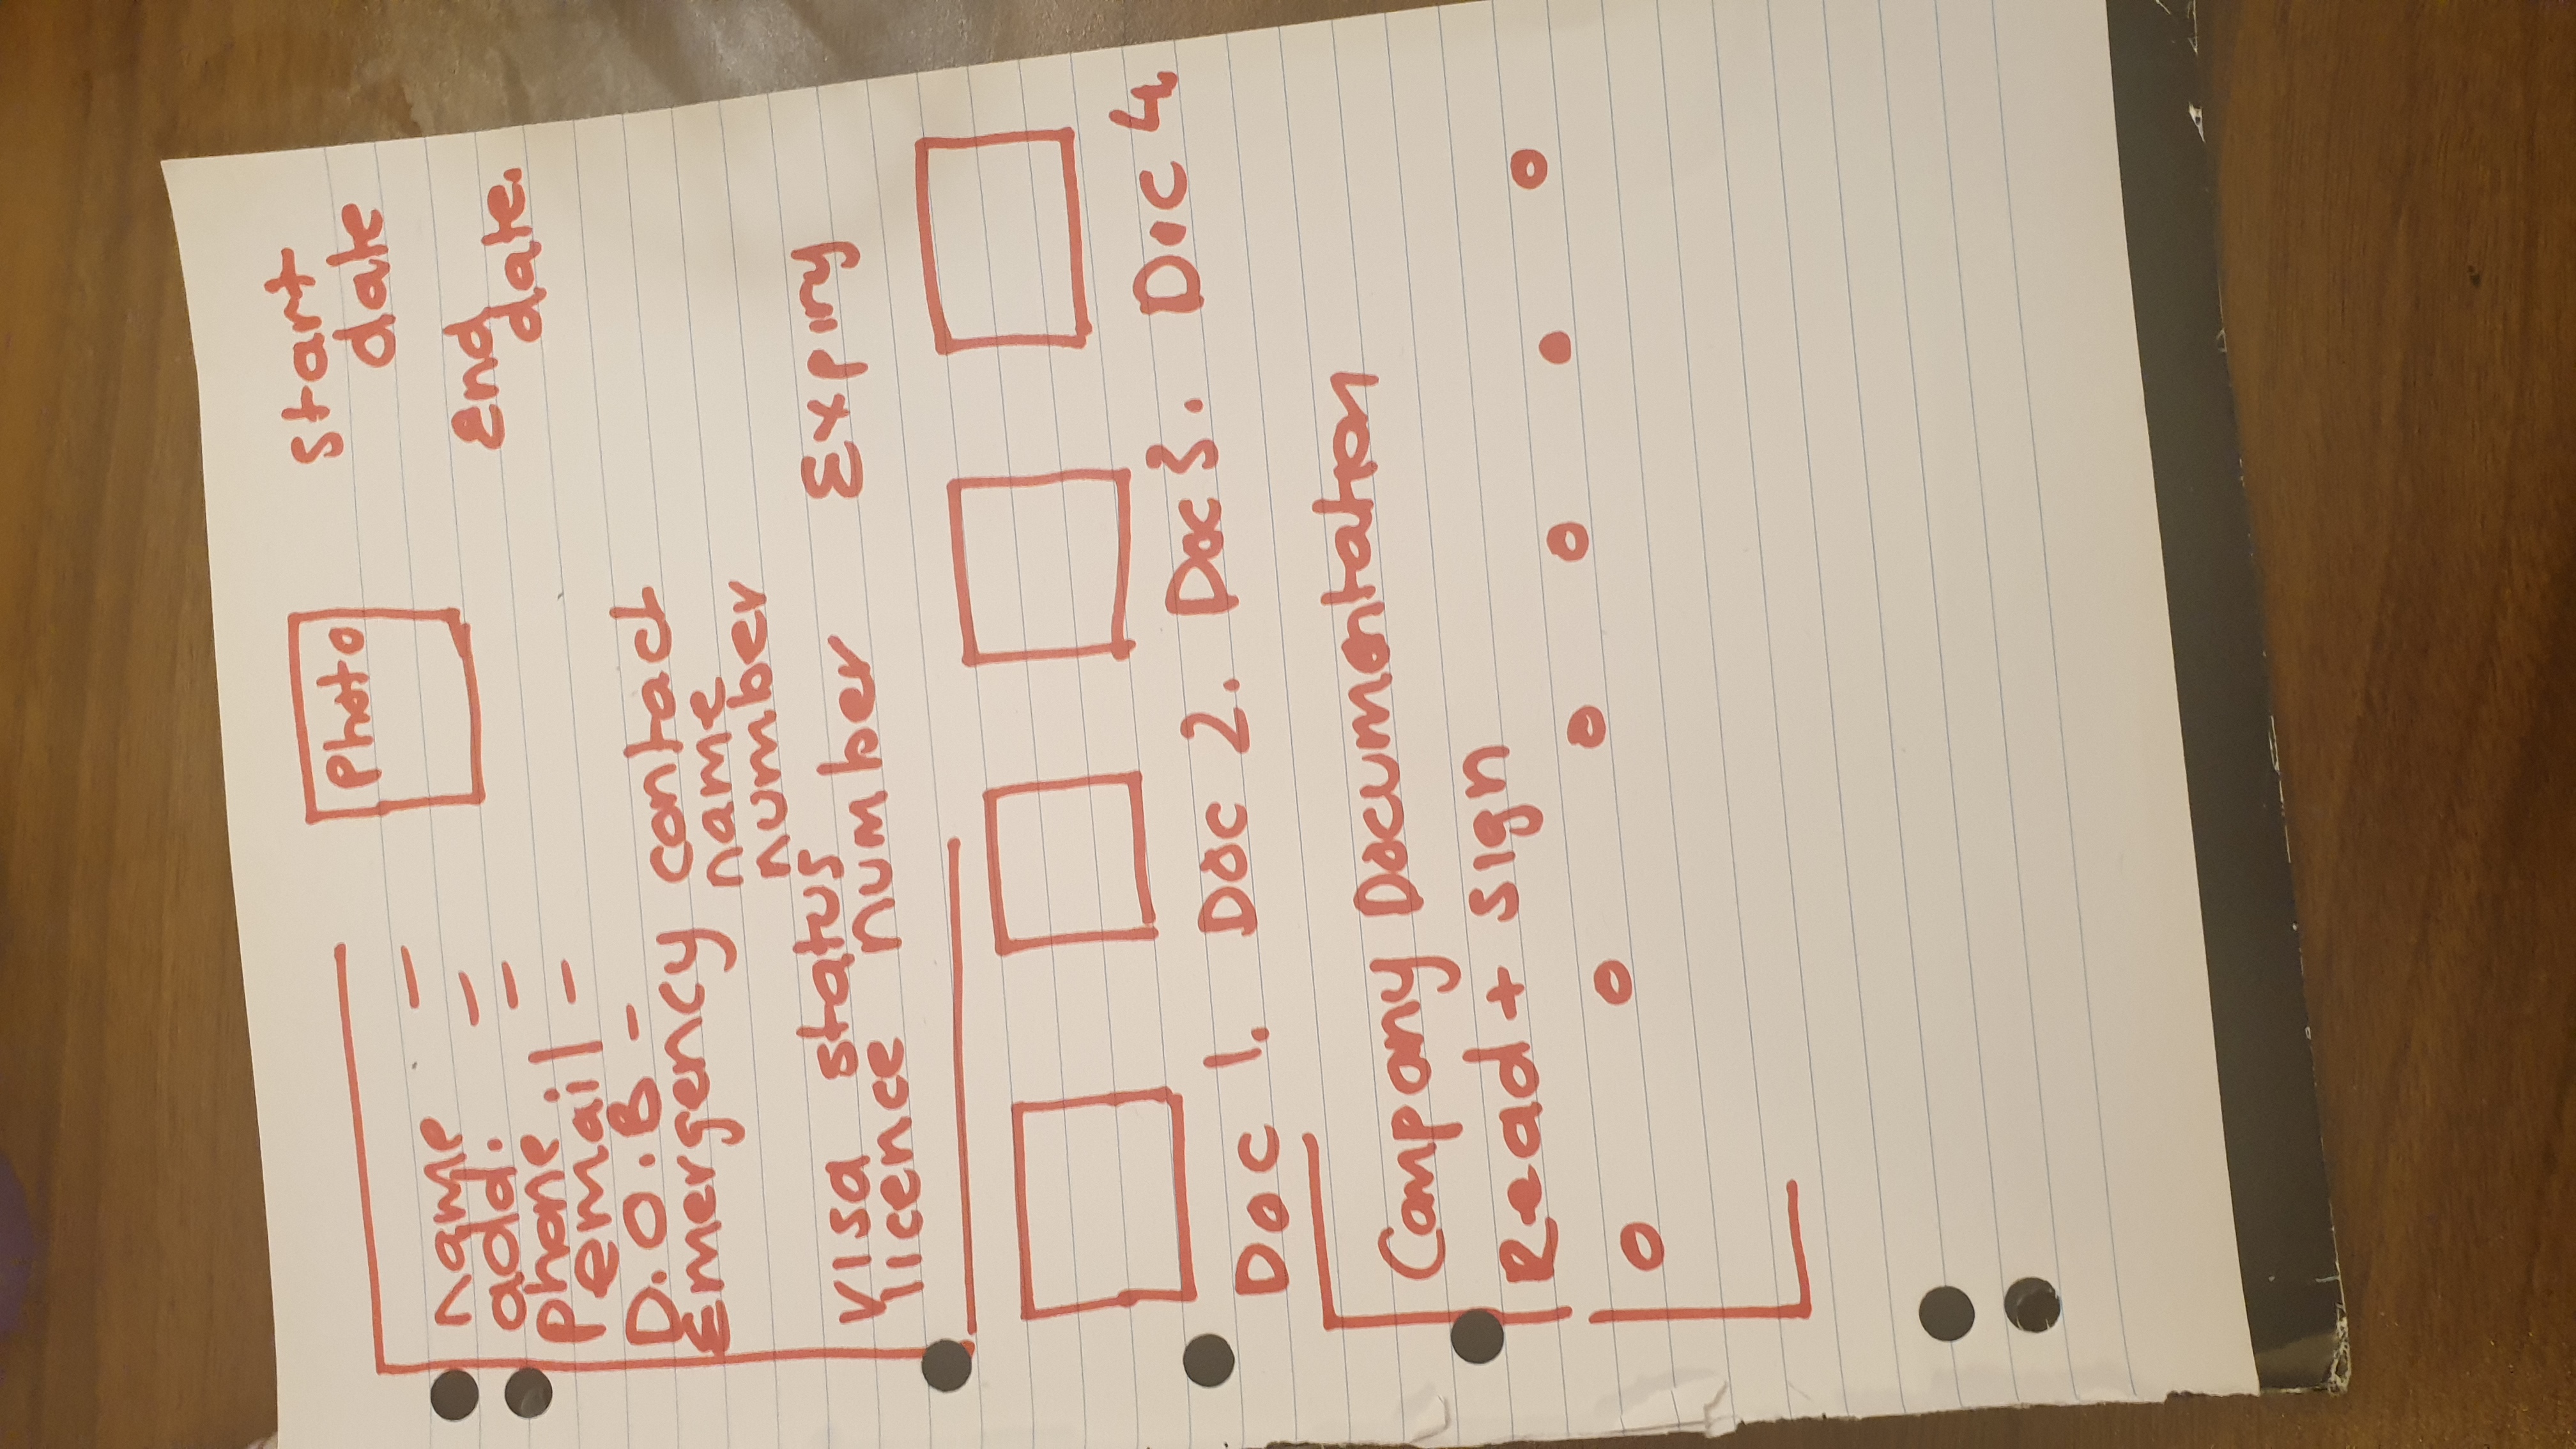 Photo
Start
date
End
date.
name -
add. -
phone -
email -
D.O.B -
Emergency contact
name
number
visa status
licence number Expiry
Doc 1. Doc 2. Doc 3. Doc 4.
Company Documentation
Read + sign